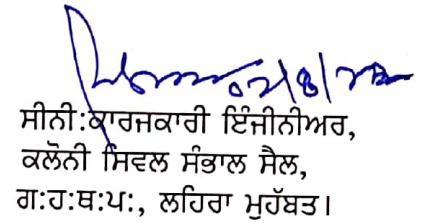 ਸੀਨੀ:ਕਾਰਜਕਾਰੀ ਇੰਜੀਨੀਅਰ,
ਕਲੋਨੀ ਸਿਵਲ ਸੰਭਾਲ ਸੈਲ,
ਗ:ਹ:ਥ:ਪ:, ਲਹਿਰਾ ਮੁਹੱਬਤ।